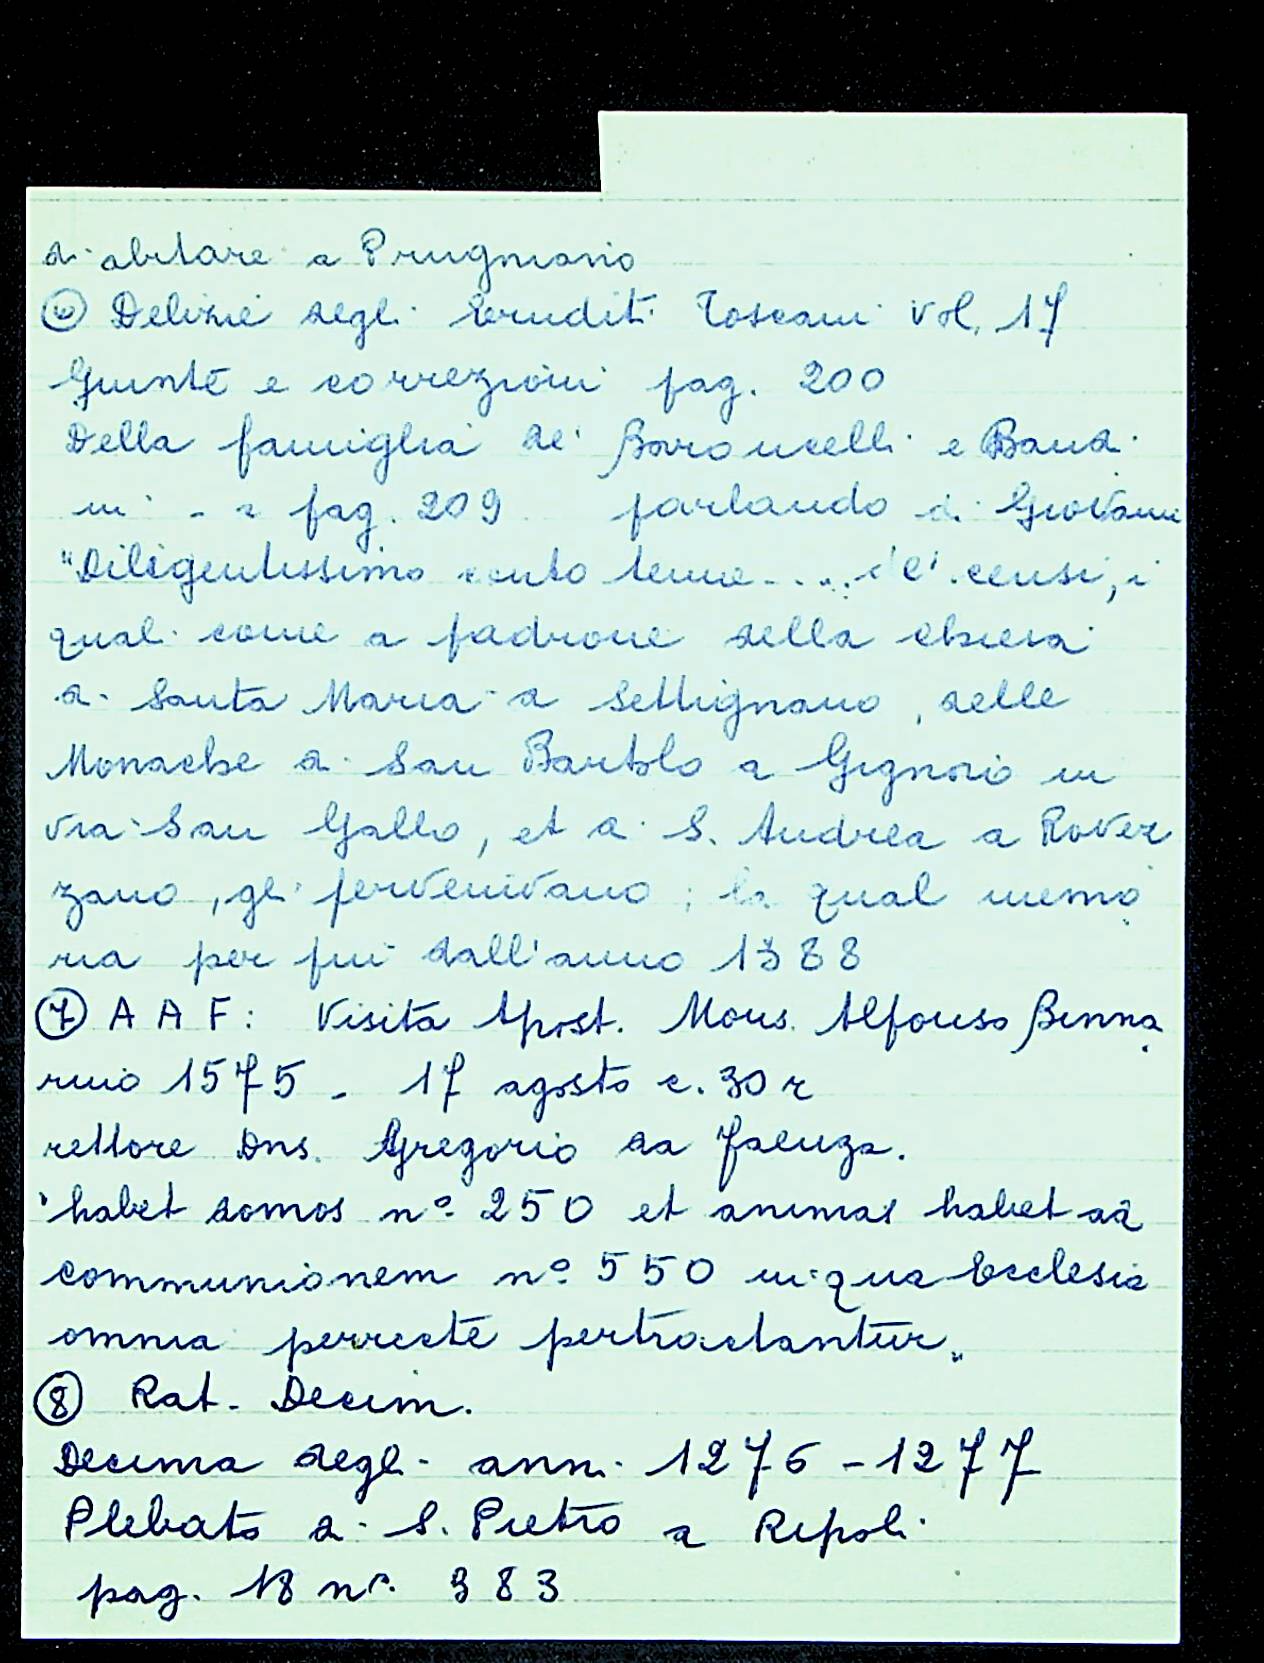 di abitare a Prugnano
⑥ Delizie degli Eruditi Toscani vol. 17
Giunte e correzioni pag. 200
Della famiglia de' Baroncelli e Bandi
ni - a pag. 209 parlando di Giovanni
"Diligentissimo conto tenne .... de' censi, i
quali come a padrone della chiesa
di Santa Maria a Settignano, delle
Monache di San Bartolo a Gignoro in
via San Gallo, et di S. Andrea a Rovez
zano, gli pervenivano; la qual memo
ria per fui dall'anno 1388
⑦ A A F: Visita Apost. Mons. Alfonso Binna
rino 1575 - 17 agosto c. 30 r
rettore Dns. Gregorio da Faenza.
"habet domos n° 250 et animas habet ad
communionem n° 550 in qua Ecclesia
omnia perrecte pertractantur"
⑧ Rat. Decim.
Decima degli anni 1276 - 1277
Plebato di S. Pietro a Ripoli
pag. 18 n° 383